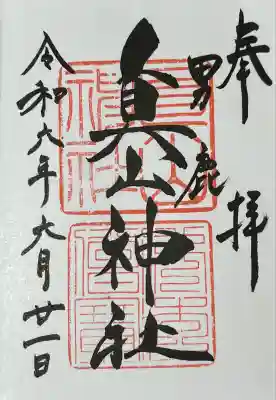 奉拝
男鹿
真山神社
令和六年六月廿一日